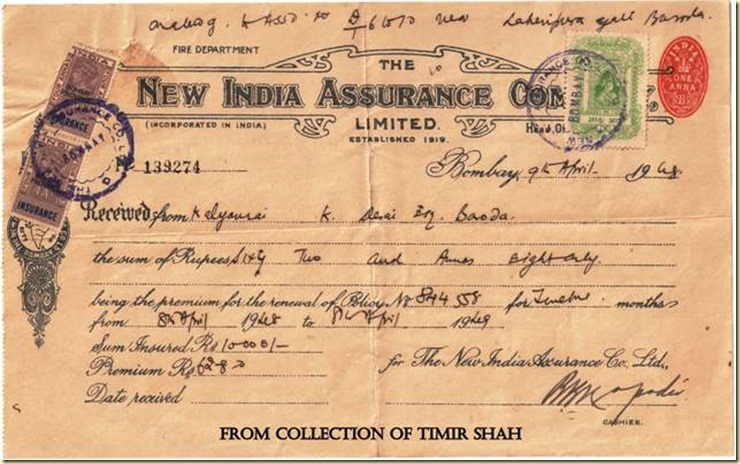 near Laheripura gali Baroda.
FIRE DEPARTMENT
THE
NEW INDIA ASSURANCE COM
(INCORPORATED IN INDIA)
LIMITED.
ESTABLISHED 1919.
HEAD, OF
INDIA
ONE ANNA
BOMBAY
BOMBAY
INSURANCE
INSURANCE
139274
Bombay, 9th April 1948.
Received from Kalyanrai K. Desai Esq. Baroda.
the sum of Rupees Sixty Two and Annas Eight only.
being the premium for the renewal of Policy No 844558 for Twelve months
from 8th April 1948 to 8th April 1949
Sum Insured Rs 10000/-
Premium Rs 62 8
for The New India Assurance Co. Ltd.,
Date received
CASHIER.
FROM COLLECTION OF TIMIR SHAH